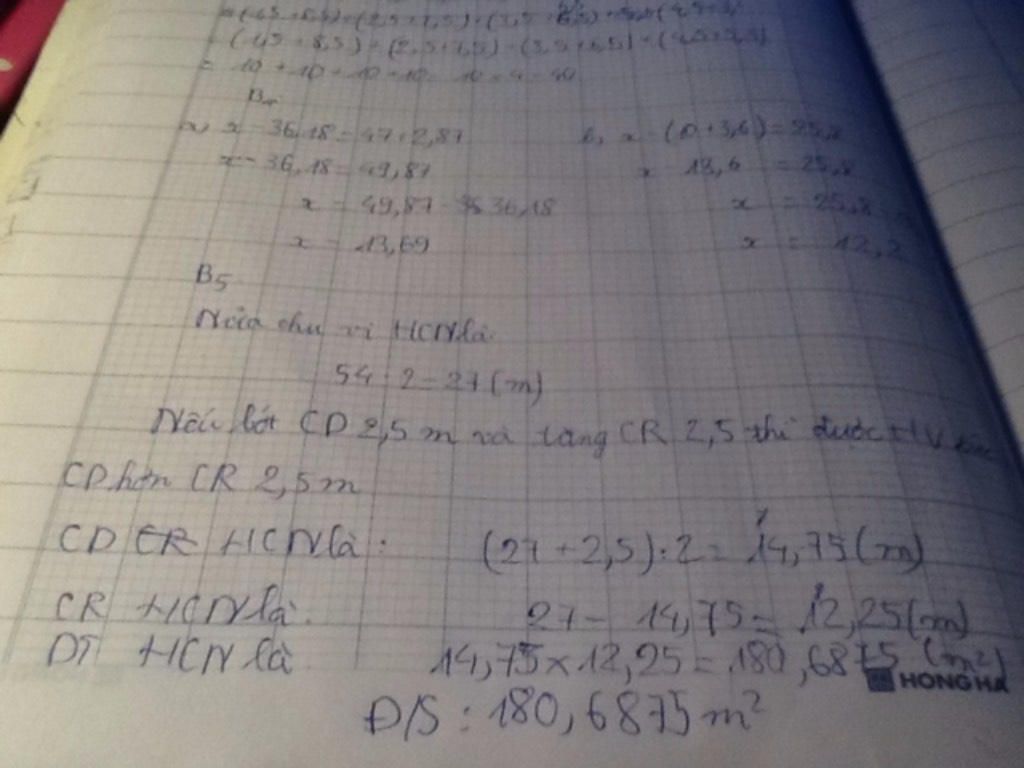 = (1,5 + 8,5) + (2,5 + 7,5) + (3,5 + 6,5) + (4,5 + 5,5)
= 10 + 10 + 10 + 10 = 10 × 4 = 40
B4
a, x - 36,18 = 47 + 2,87
x - 36,18 = 49,87
x = 49,87 - 36,18
x = 13,69
b, x - (10 + 3,6) = 25,8
x 13,6 = 25,8
x = 25,8
x = 12,2
B5
Nửa chu vi HCN là
54 : 2 = 27 (m)
Nếu bớt CD 2,5 m và tăng CR 2,5 thì được HV
CD hơn CR 2,5 m
CD HCN là : (27 + 2,5) : 2 = 14,75 (m)
CR HCN là : 27 - 14,75 = 12,25 (m)
DT HCN là 14,75 x 12,25 = 180,6875 (m²)
HONG HA
Đ/S : 180,6875 m²